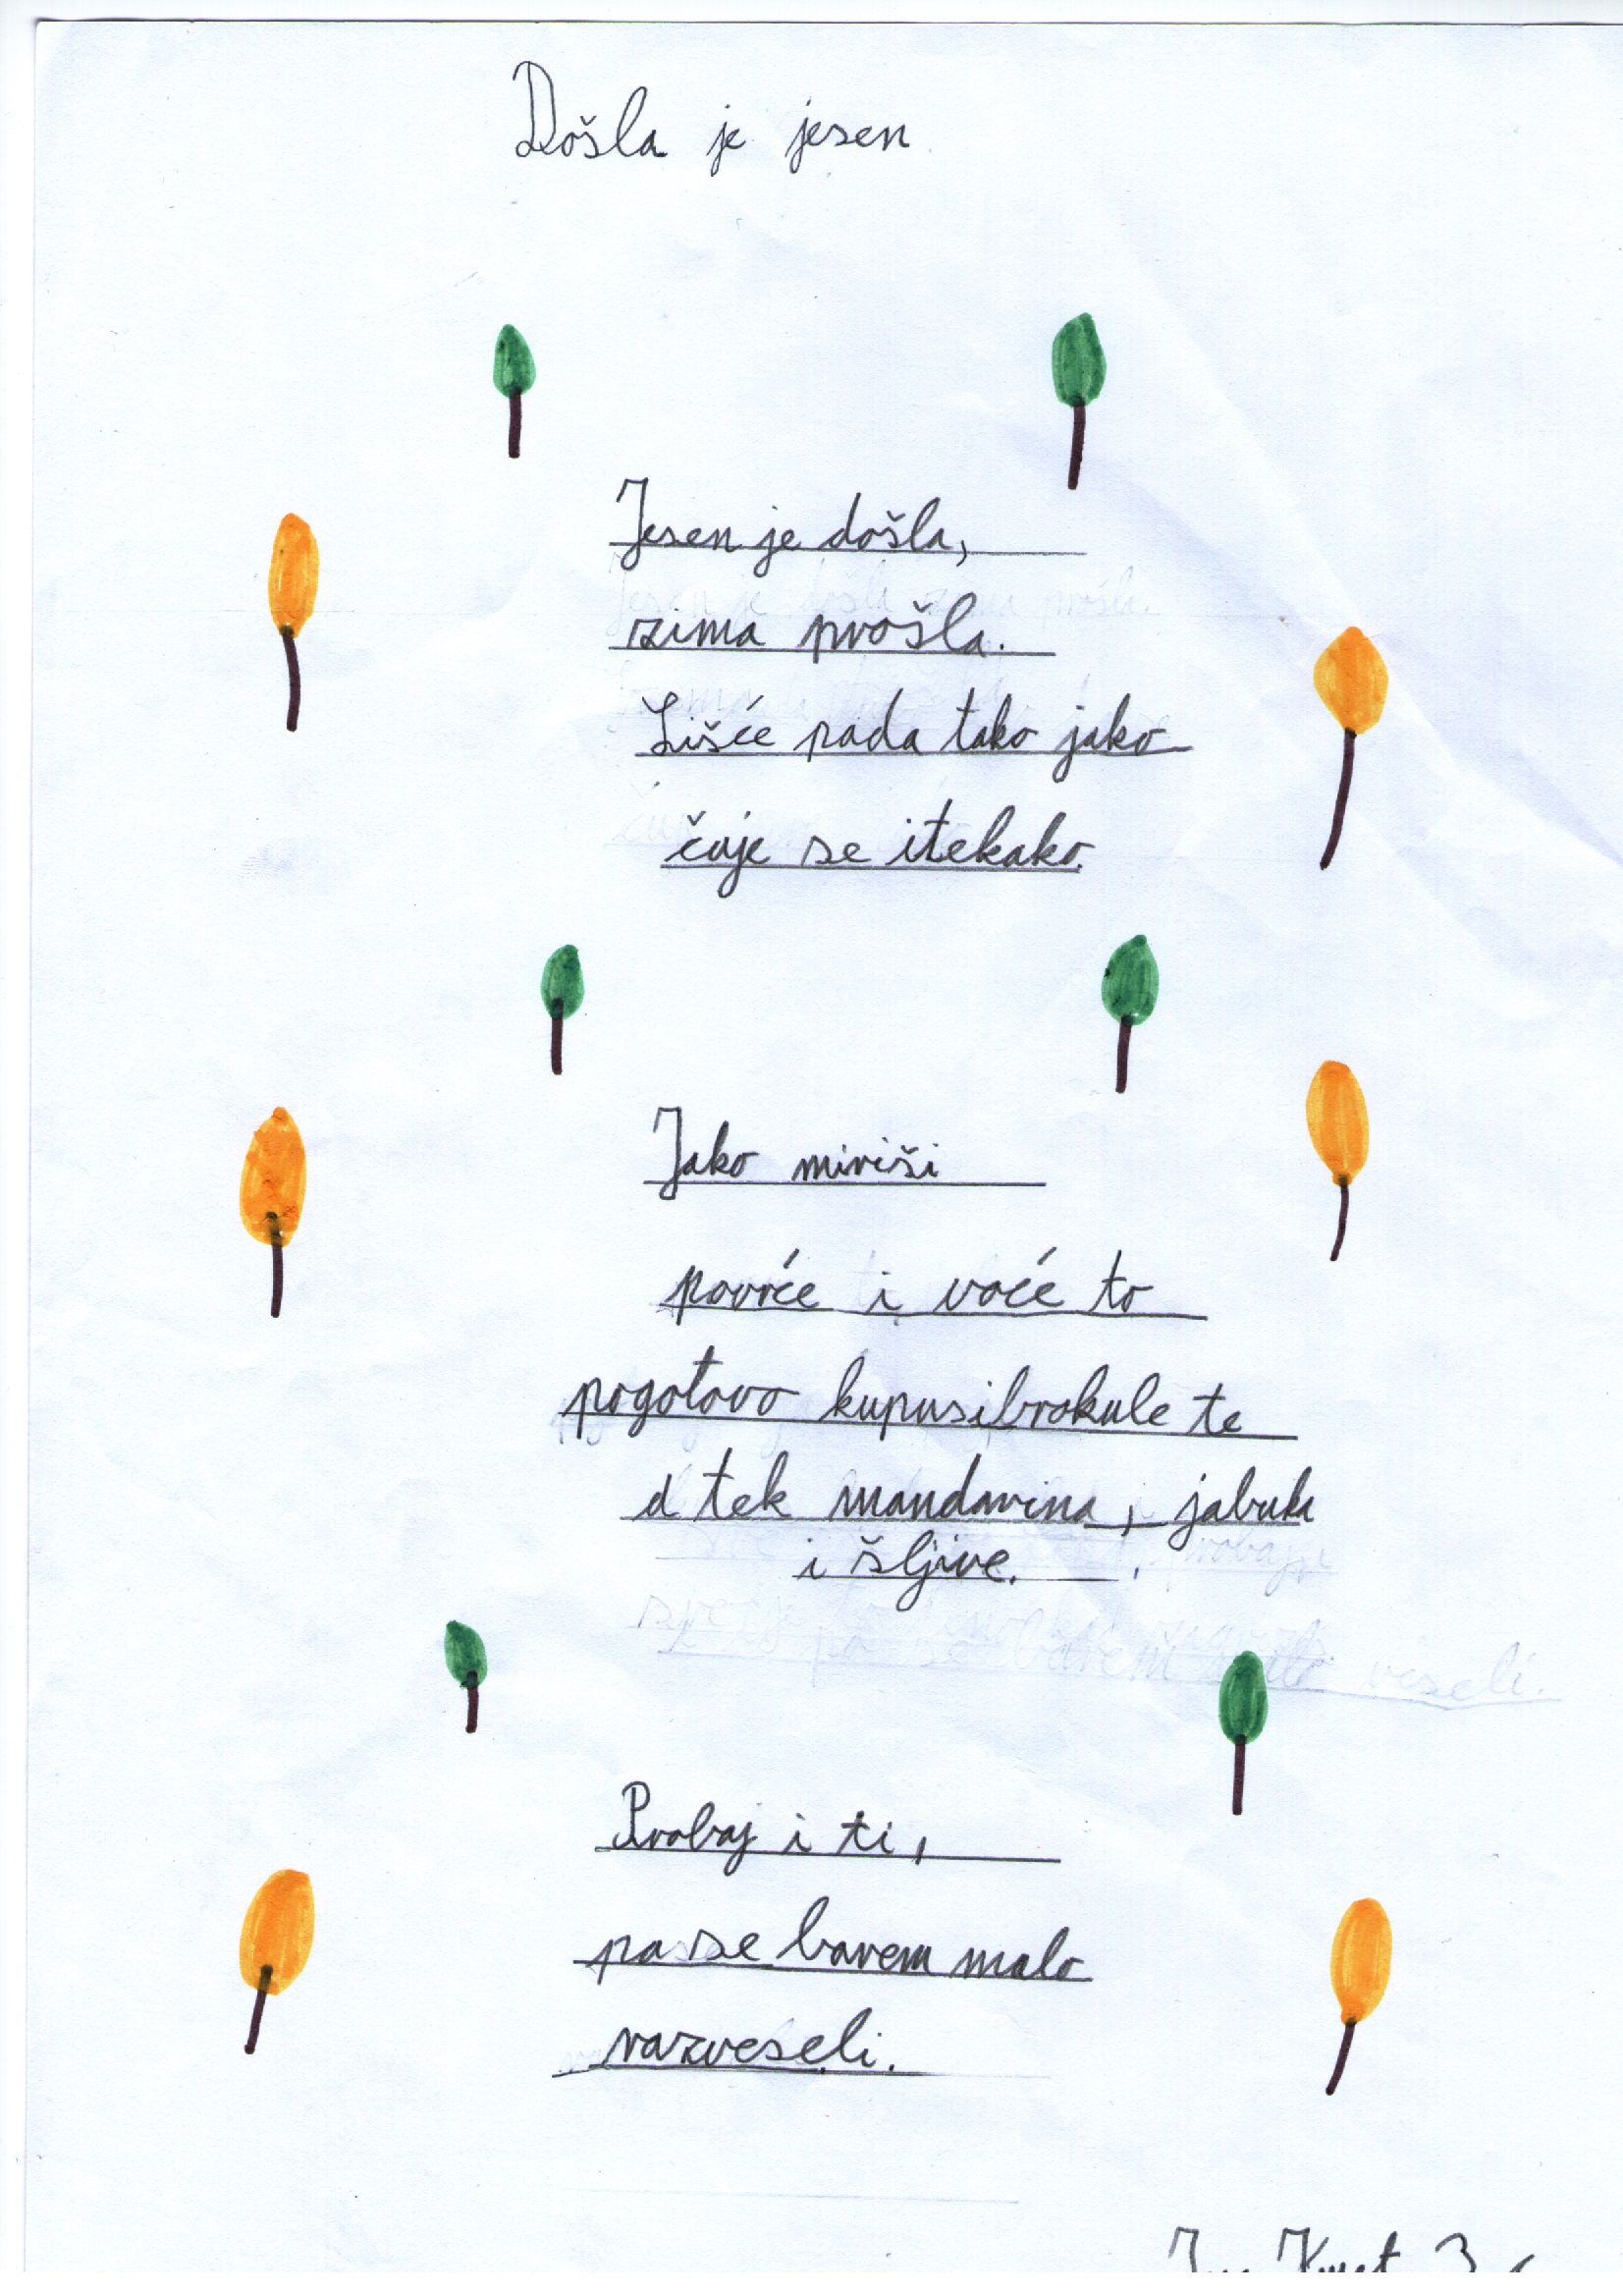 Došla je jesen
Jesen je došla,
zima prošla.
Lišće pada tako jako
čuje se itekako.
Jako miriši
povrće i voće to
pogotovo kupusibrokule te
a tek mandarina, jabuka
i šljive.
Probaj i ti,
pa se barem malo
razveseli.
Kmet 3